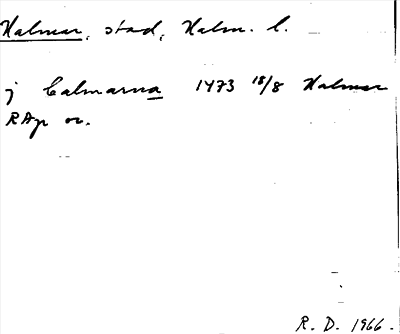 Kalmar, stad, Kalm. l.
j Calmarna 1473 18/8 Kalmar
RAp or.
R. D. 1966.